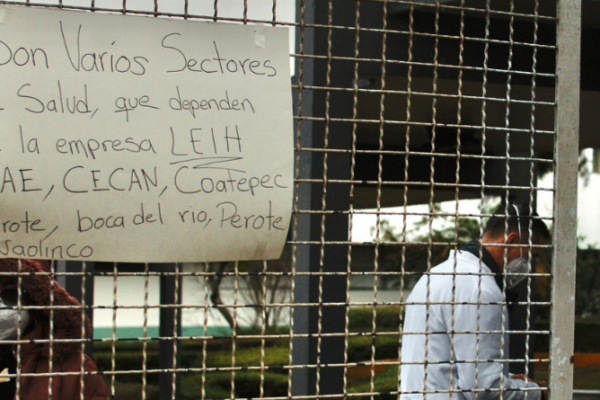 Don Varios Sectores
Salud, que dependen
la empresa LEIH
AE, CECAN, Coatepec
rote, boca del rio, Perote
saolinco